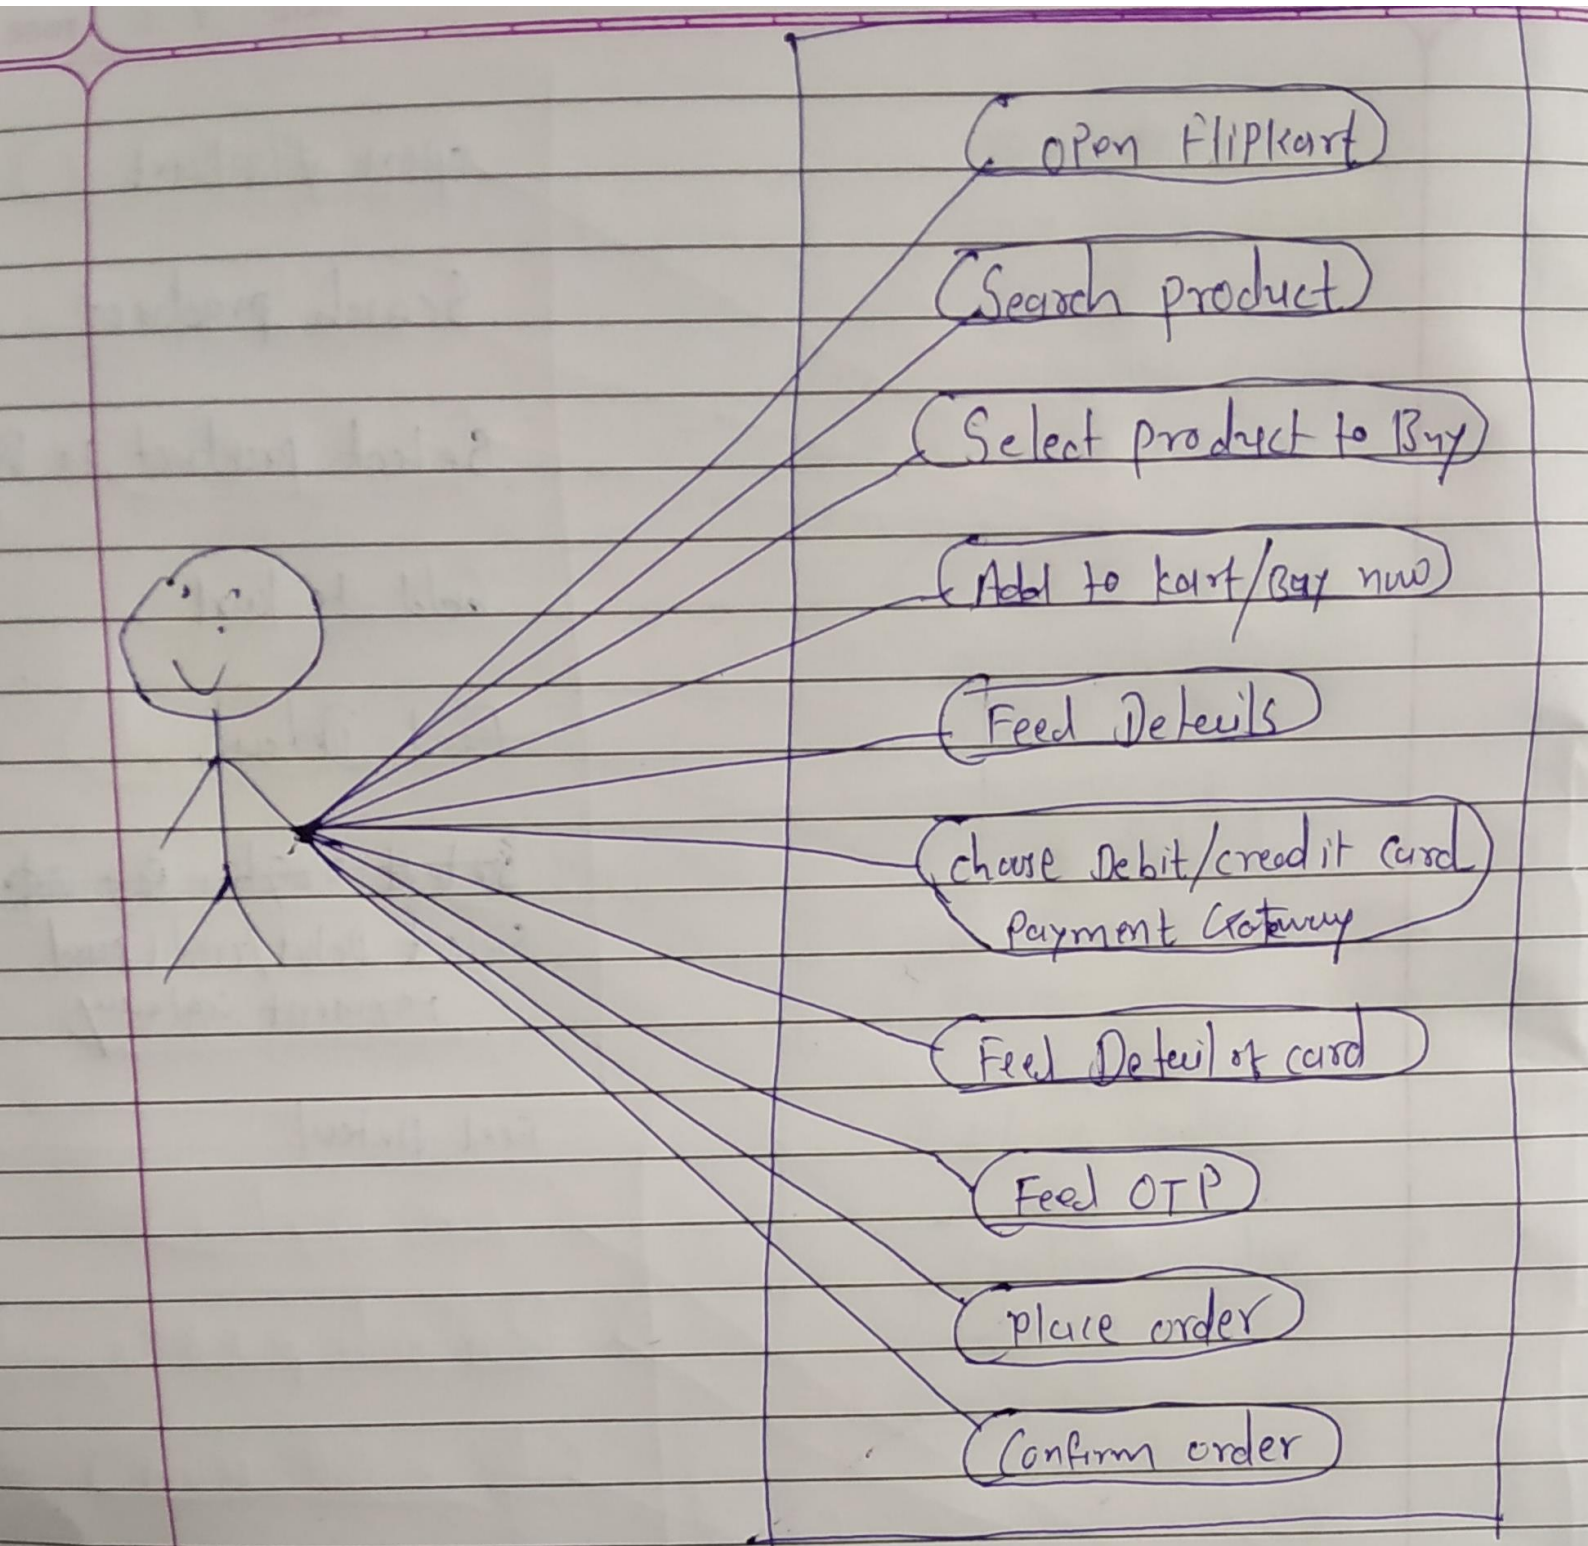 Open Flipkart
Search product
Select product to Buy
Add to kart/Buy now
Feed Details
choose Debit/creadit card
Payment Gateway
Feed Detail of card
Feed OTP
place order
Confirm order